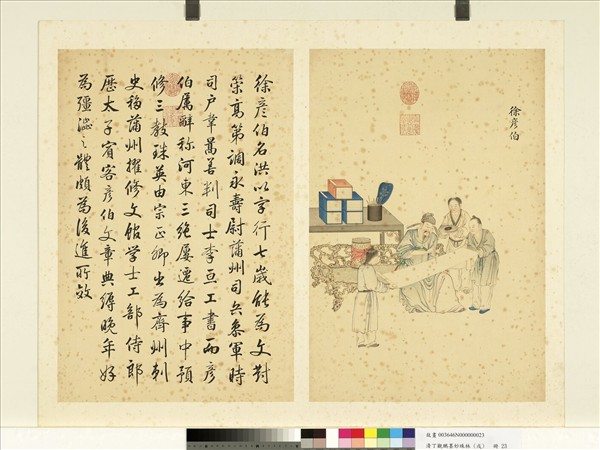 徐彥伯
徐彥伯名洪以字行七歲能為文對
策高第調永壽尉蒲州司兵參軍時
司戶韋暠善判司士李亘工書而彥
伯屬辭稱河東三絕屢遷給事中預
修三教珠英由宗正卿出為齊州刺
史移蒲州擢修文館学士工部侍郎
歷太子賓客彥伯文章典縟晚年好
為彊澁之體頗為後進所效
故畫 003646N000000023
清丁觀鵬墨妙珠林（戌） 冊 23